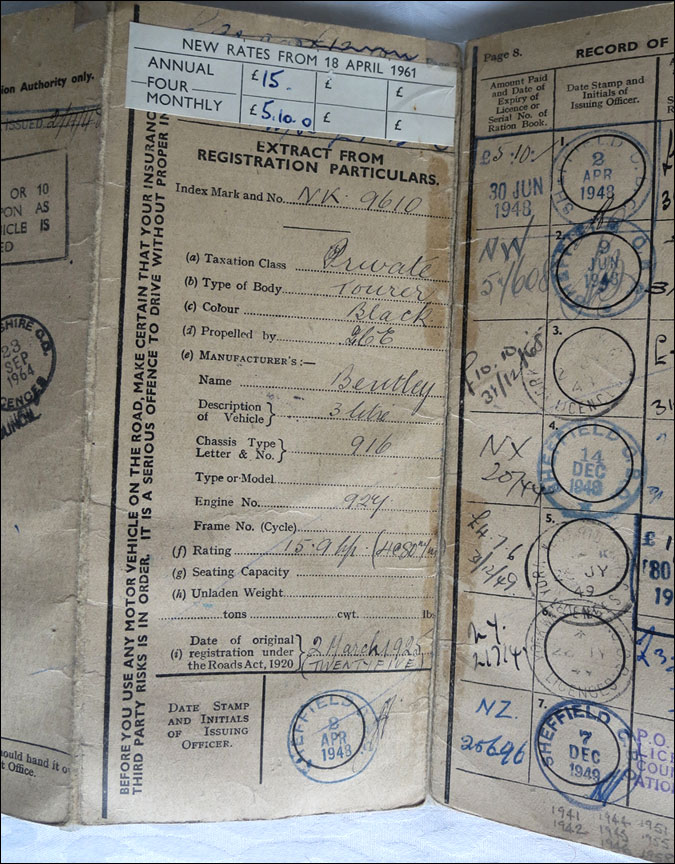 ion Authority only.
ISSUED
OR 10
PON AS
HICLE IS
ED
SHIRE C.C.
23
SEP
1964
LICENCES
COUNCIL
ould hand it o
t Office.
BEFORE YOU USE ANY MOTOR VEHICLE ON THE ROAD, MAKE CERTAIN THAT YOUR INSURANC
THIRD PARTY RISKS IS IN ORDER. IT IS A SERIOUS OFFENCE TO DRIVE WITHOUT PROPER IN
NEW RATES FROM 18 APRIL 1961
ANNUAL £15. £ £
FOUR
MONTHLY £5.10.0 £ £
EXTRACT FROM
REGISTRATION PARTICULARS.
Index Mark and No. NK. 9610
(a) Taxation Class Private
(b) Type of Body Tourer
(c) Colour Black
(d) Propelled by ICE
(e) MANUFACTURER'S:—
Name Bentley
Description
of Vehicle } 3 litre
Chassis Type
Letter & No. } 916
Type or Model
Engine No. 927
Frame No. (Cycle)
(f) Rating 15.9 hp. (4C80m/m
(g) Seating Capacity
(h) Unladen Weight
tons cwt. lb
Date of original
(i) registration under 2 March 1925
the Roads Act, 1920 (TWENTY FIVE)
DATE STAMP
AND INITIALS
OF ISSUING
OFFICER.
SHEFFIELD
2
APR
1948
Page 8.
RECORD OF
Amount Paid
and Date of
Expiry of
Licence or
Serial No. of
Ration Book.
Date Stamp and
Initials of
Issuing Officer.
£5.10.
30 JUN
1948
1.
SHEFFIELD G.P.O.
2
APR
1948
NW
2.
JUN
1948
£10.10.
3.
LICENCES
NX
4.
SHEFFIELD G.P.O.
14
DEC
1948
£4.7.6
31/12/49
5.
JY
49
6.
LICENCES
NZ.
7.
SHEFFIELD
7
DEC
1949
P.O.
LICE
COUN
1941 1944 1951
1942